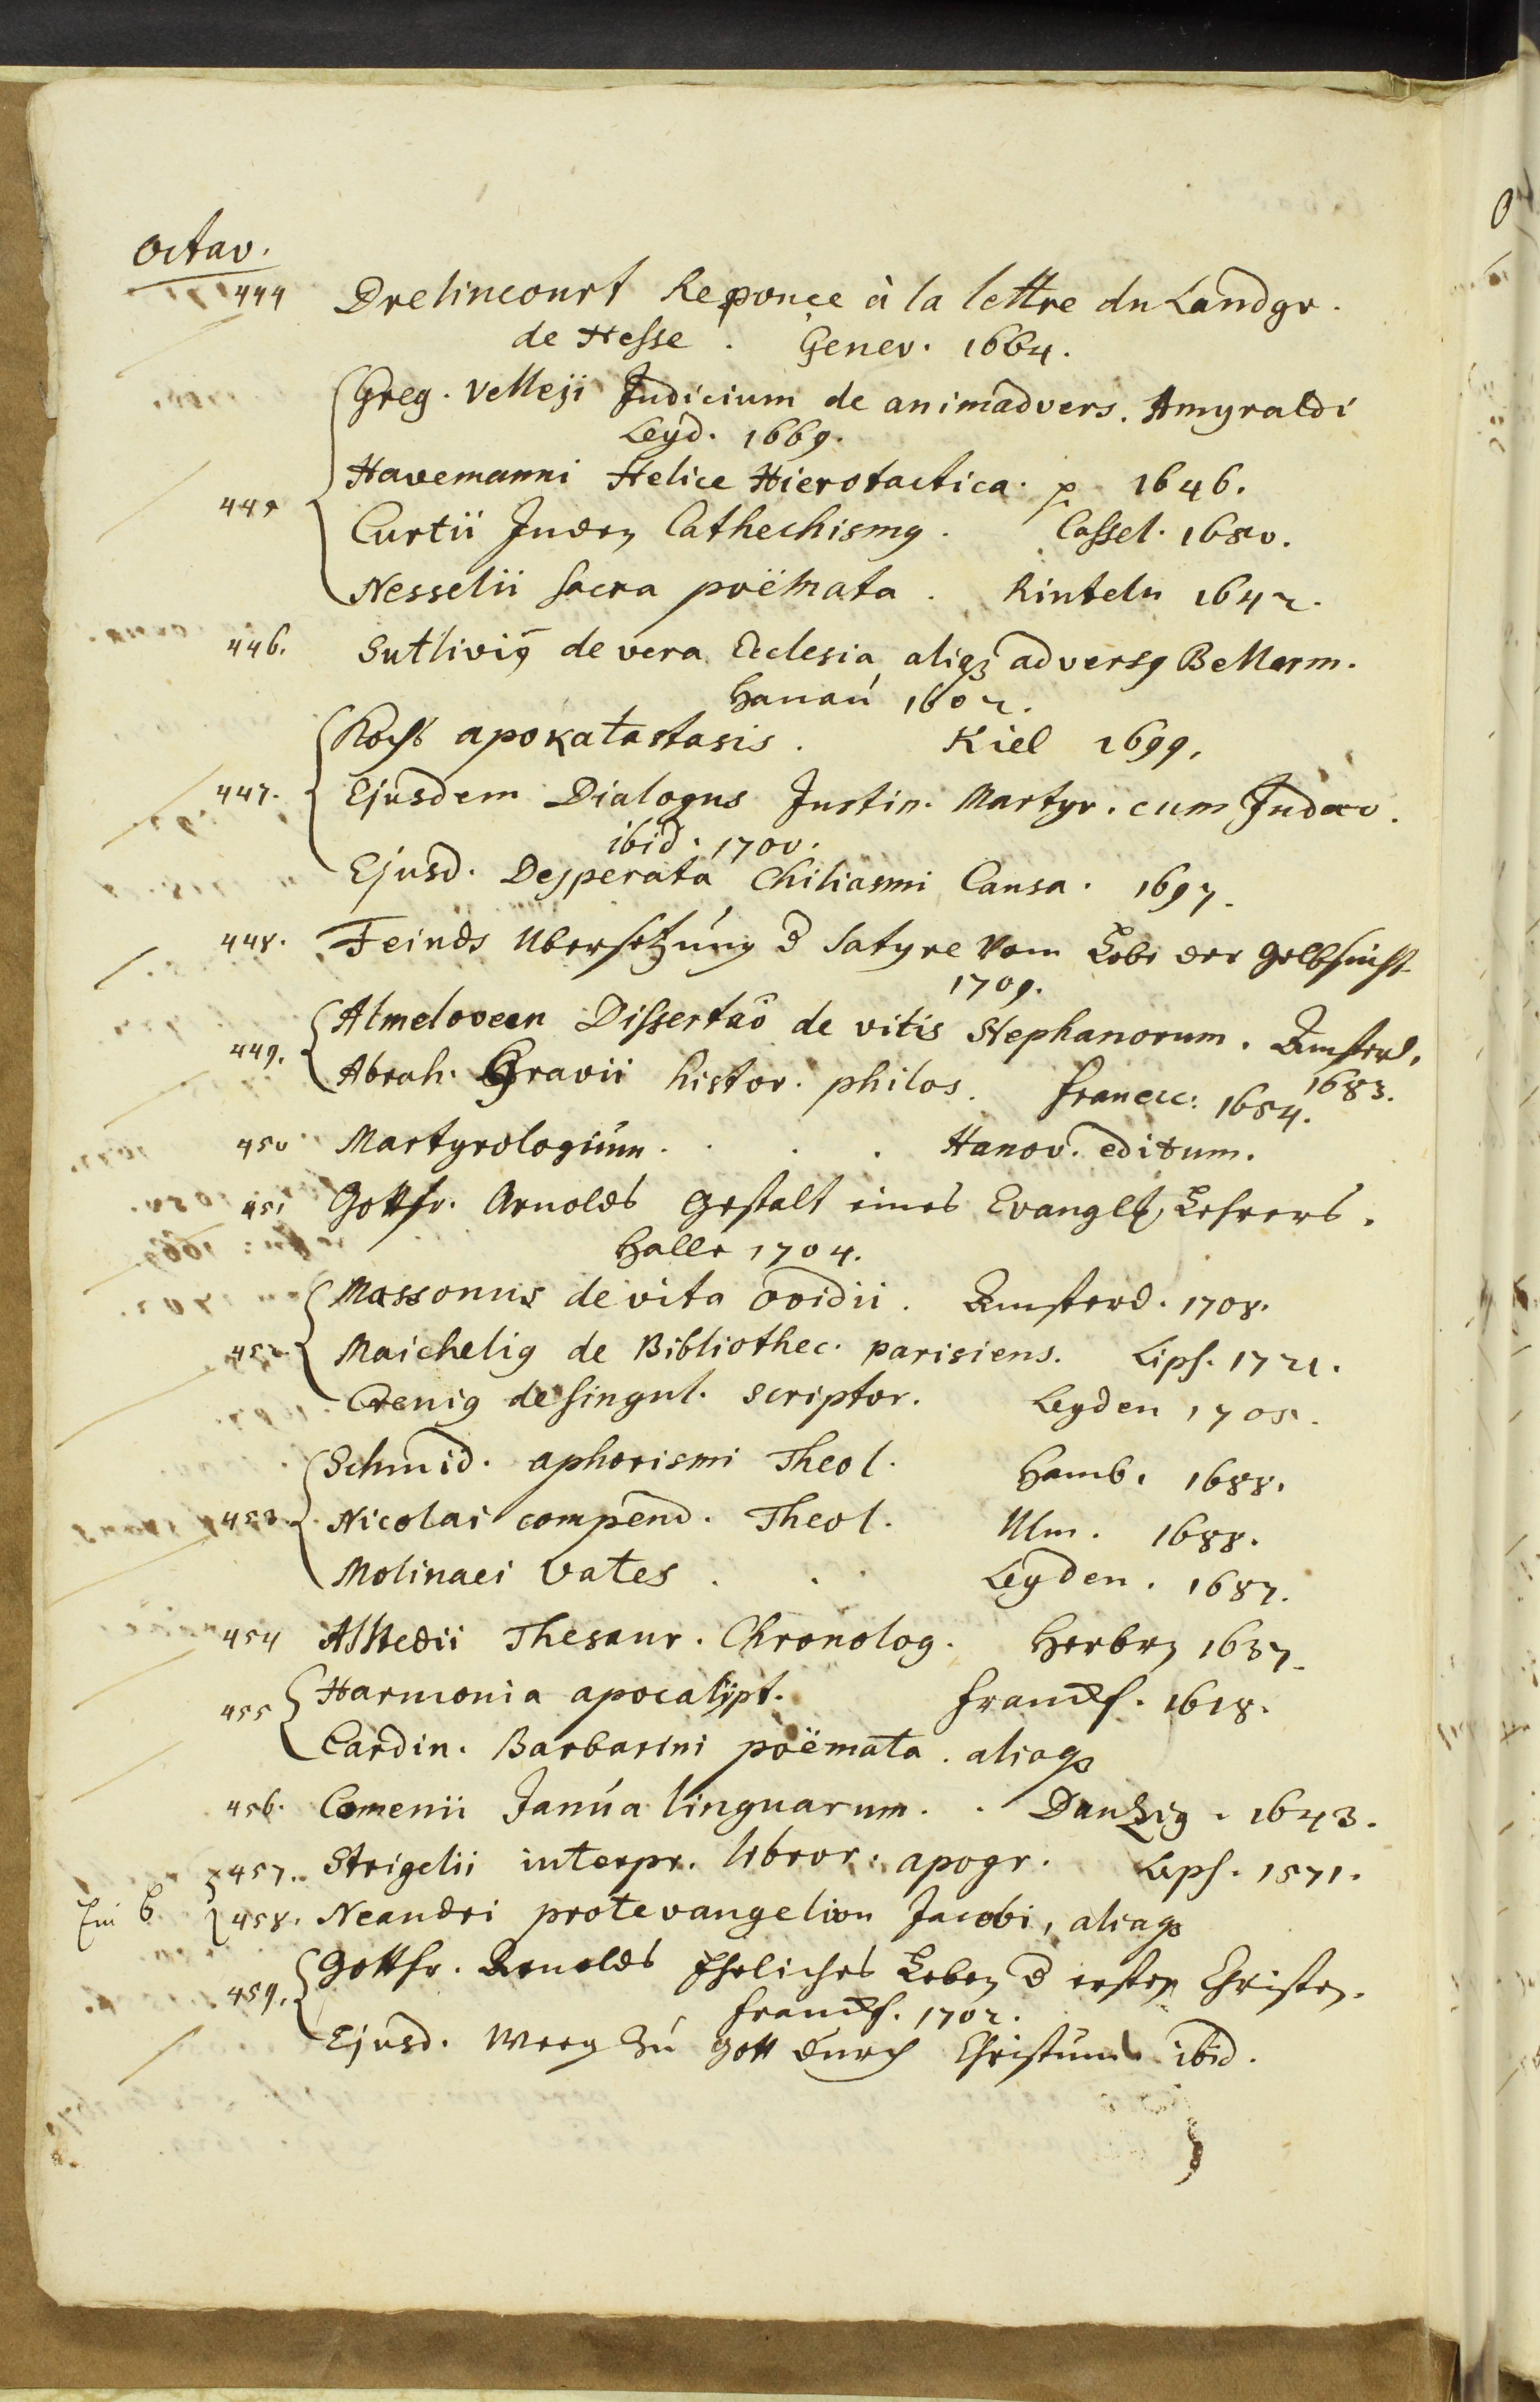 Octav.
444 Drelincourt Reponce à la lettre du Landgr.
de Hesse. Genev. 1664.
Greg. Velleji Judicium de animadvers. Amyraldi
Leyd. 1669.
445 Havemanni Helice Hierotactica. 1646.
Curtii Juden Cathechismus. Cassel. 1650.
Nesselii Sacra poëmata. Rinteln 1642.
446. Sutlivius de vera Ecclesia aliaque adversus Bellarm.
Hanau 1602.
Kochs apokatastasis. Kiel 1699.
447. Ejusdem Dialogus Justin. Martyr. cum Judaeo.
ibid. 1700.
Ejusd. Desperata Chiliasmi Causa. 1697.
448. Feinds Ubersetzung d Satyre Vom Lobe der Gelbsucht
1709.
449. Almeloveen Dissertao de vitis Stephanorum. Amsterd.
1683.
Abrah. Gravii histor. philos. Franecc: 1654.
450 Martyrologium . . . Hanov. editum.
451 Gottfr. Arnolds Gestalt eines Evangel. Lehrers.
Halle 1704.
Massonus de vita Ovidii. Amsterd. 1708.
452. Maichelius de Bibliothec. parisiens. Lips. 1721.
Crenius de singul. Scriptor. Leyden 1705.
Schmid. aphorismi Theol. Hamb. 1688.
453. Nicolai compend. Theol. Ulm. 1688.
Molinaei Vates . . Leyden. 1687.
454 Alstedii Thesaur. Chronolog. Herborn 1637.
455 Harmonia apocalipt. Franckf. 1618.
Cardin. Barbarini poëmata. aliaque
456. Comenii Janua linguarum. . Dantzig. 1643.
457. Strigelii interpr. libror. apogr. Lips. 1571.
Ein B 458. Neandri protevangelion Jacobi, aliaque
459. Gottfr. Arnolds Eheliches Leben d ersten Christen.
Franckf. 1702.
Ejusd. Weeg zu Gott durch Christum ibid.